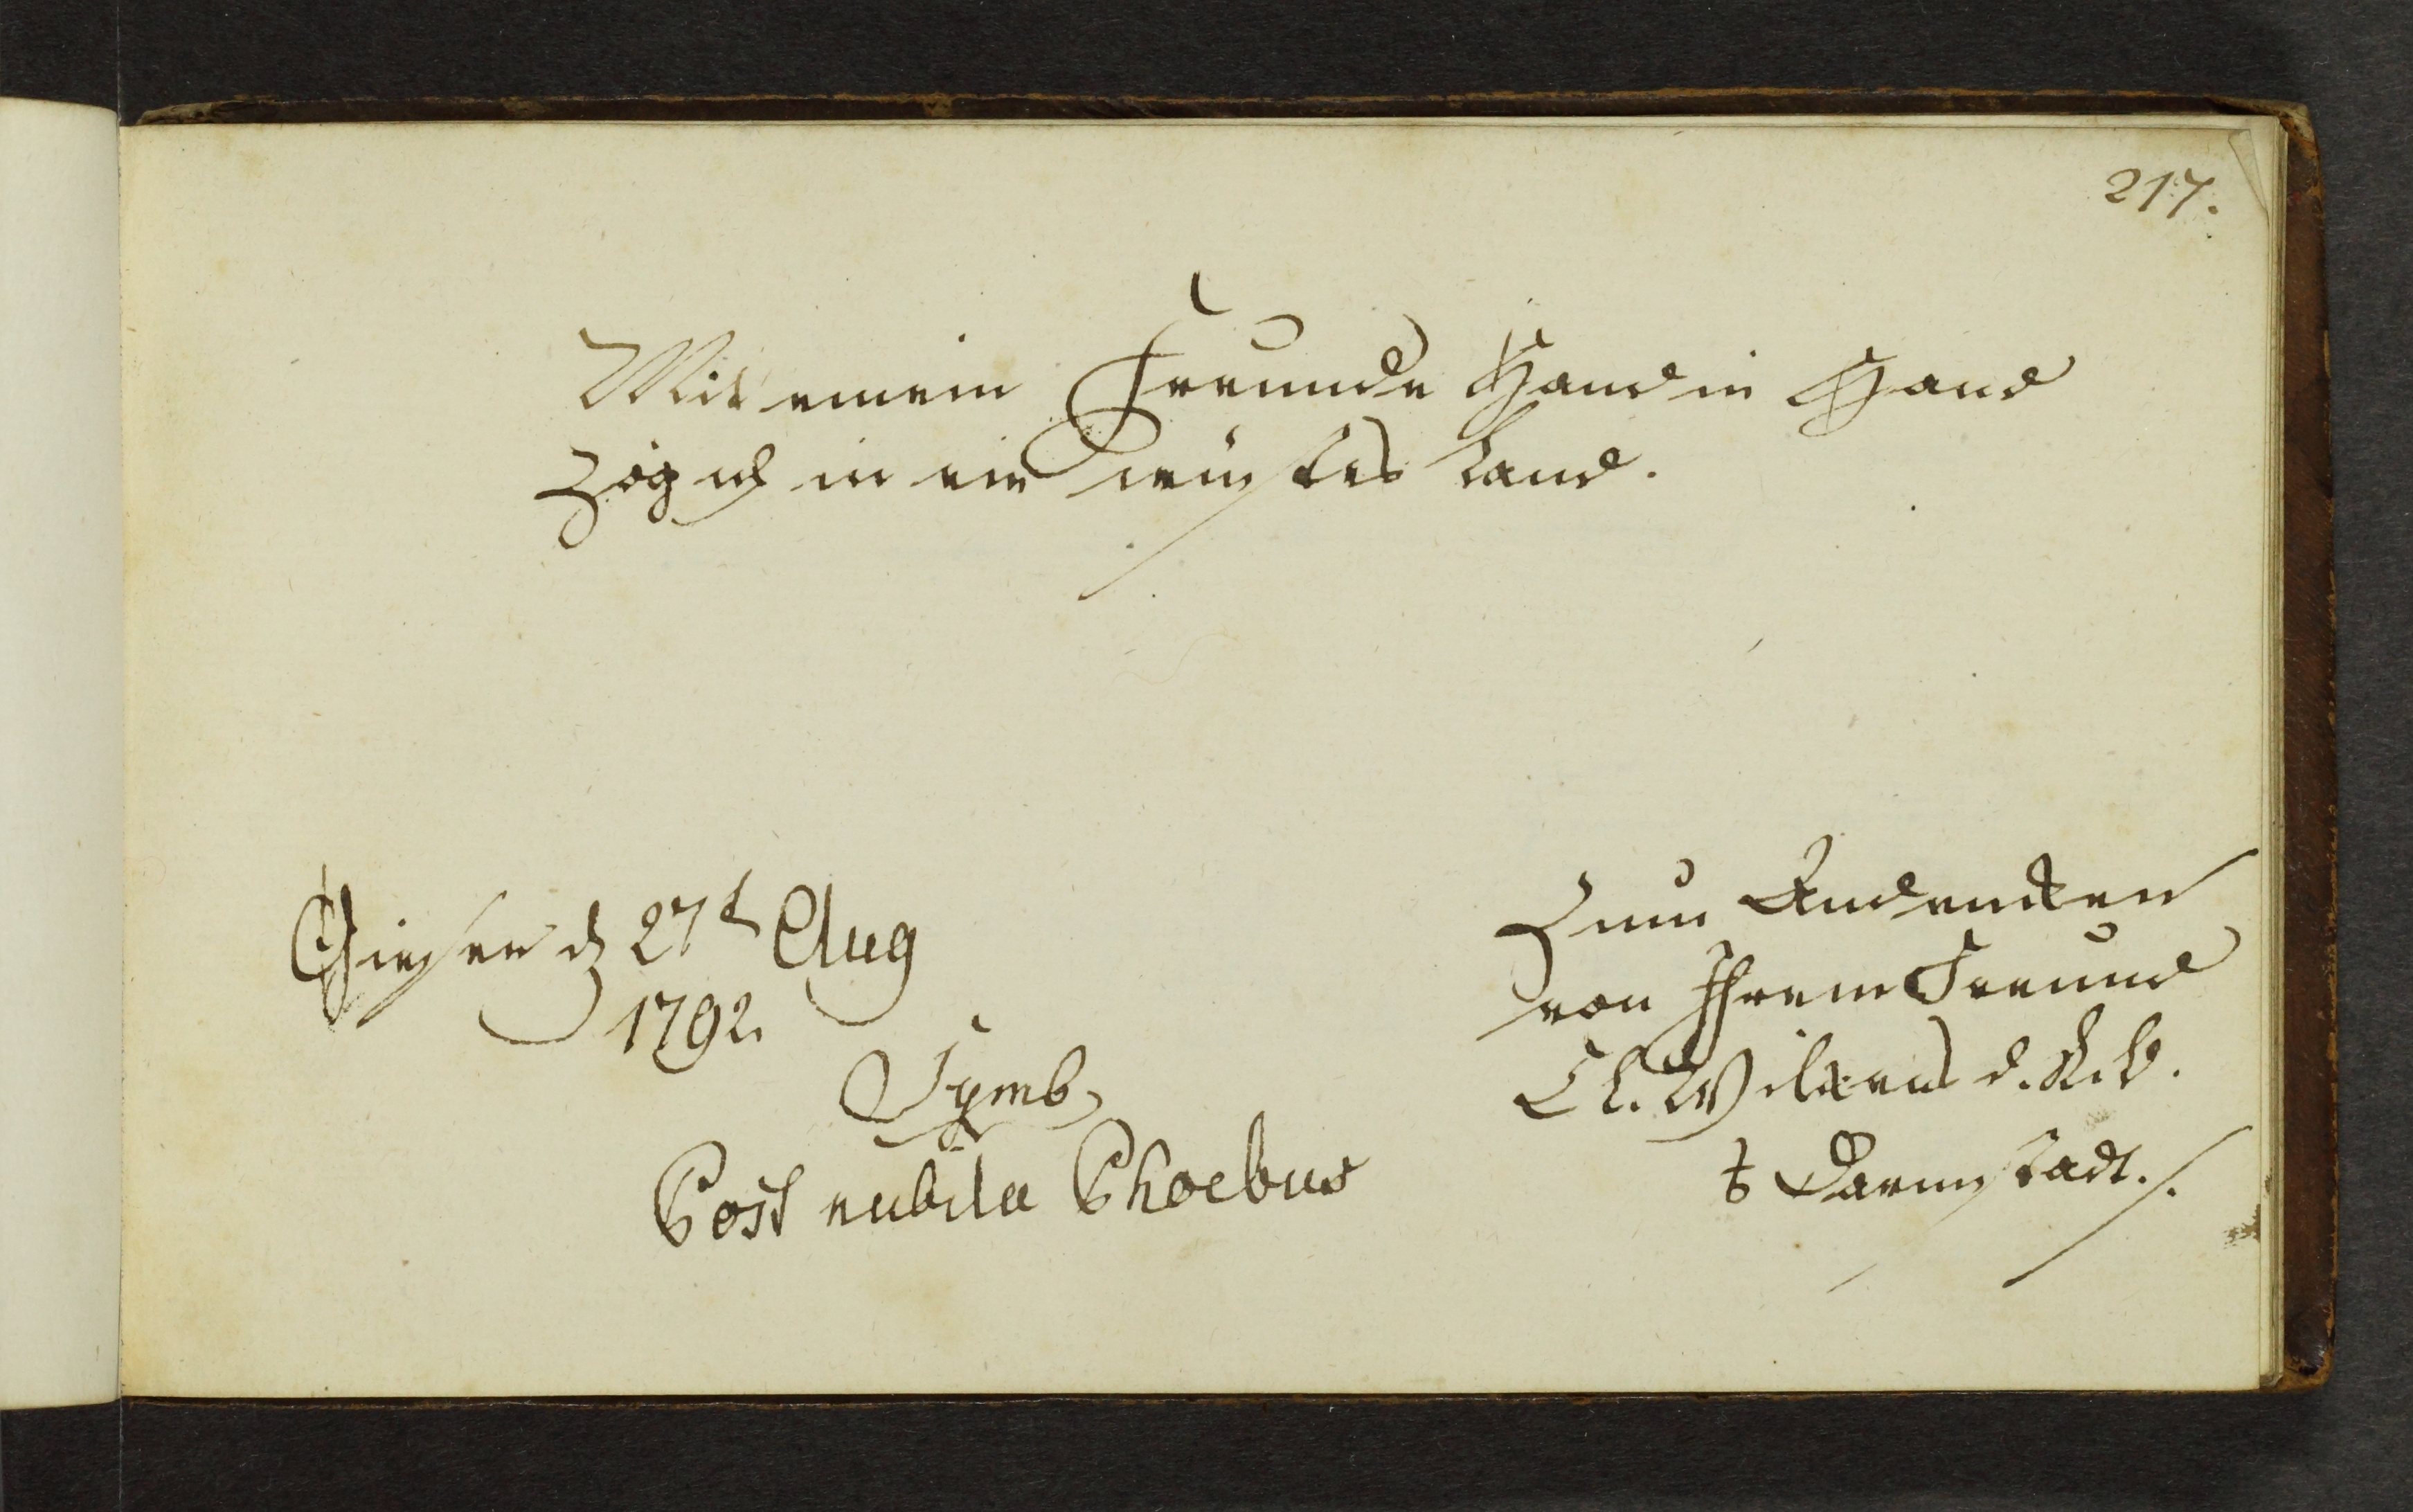 217.
Mit einem Freunde Hand in Hand
Zög ich in ein wüstes Land.
Giesen d 27t Aug
1792.
Symb.
Post nubila Phoebus
Zum Andencken
von Ihrem Freund
Ch. Wilkens d. R. b.
Darmstadt.